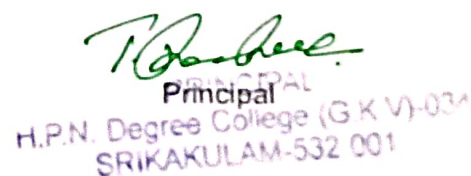 PRINCIPAL
Principal
H.P.N. Degree College (G.K V)-034
SRIKAKULAM-532 001